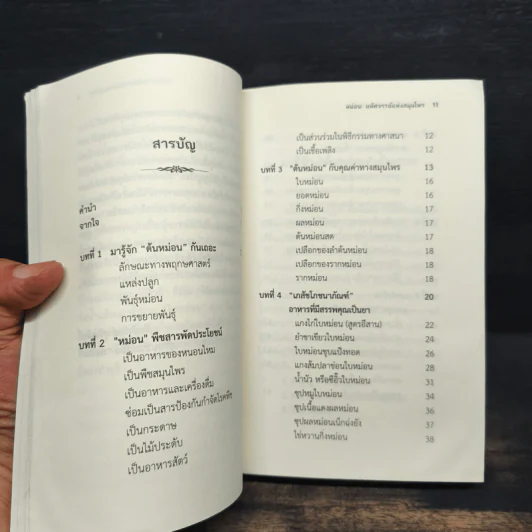 สารบัญ
คำนำ
จากใจ
บทที่ 1 มารู้จัก "ต้นหม่อน" กันเถอะ
ลักษณะทางพฤกษศาสตร์
แหล่งปลูก
พันธุ์หม่อน
การขยายพันธุ์
บทที่ 2 "หม่อน" พืชสารพัดประโยชน์
เป็นอาหารของหนอนไหม
เป็นพืชสมุนไพร
เป็นอาหารและเครื่องดื่ม
เป็นกระดาษ
เป็นไม้ประดับ
เป็นอาหารสัตว์
หม่อน มหัศจรรย์แห่งสมุนไพร 11
เป็นส่วนร่วมในพิธีกรรมทางศาสนา 12
เป็นเชื้อเพลิง 12
บทที่ 3 "ต้นหม่อน" กับคุณค่าทางสมุนไพร 13
ใบหม่อน 16
ยอดหม่อน 16
กิ่งหม่อน 17
ผลหม่อน 17
ต้นหม่อนสด 17
เปลือกของลำต้นหม่อน 18
เปลือกของรากหม่อน 18
รากหม่อน 18
บทที่ 4 "เภสัชโภชนาภัณฑ์" 20
อาหารที่มีสรรพคุณเป็นยา
แกงไก่ใบหม่อน (สูตรอีสาน) 22
ยำชาเขียวใบหม่อน 24
ใบหม่อนชุบแป้งทอด 26
แกงส้มปลาช่อนใบหม่อน 28
น้ำนัว หรือซีอิ๊วใบหม่อน 31
ซุปหมูใบหม่อน 34
ซุปเนื้อแดงผลหม่อน 36
ซุปผลหม่อนเน็กฉ่งยัง 37
ไข่หวานกิ่งหม่อน 38